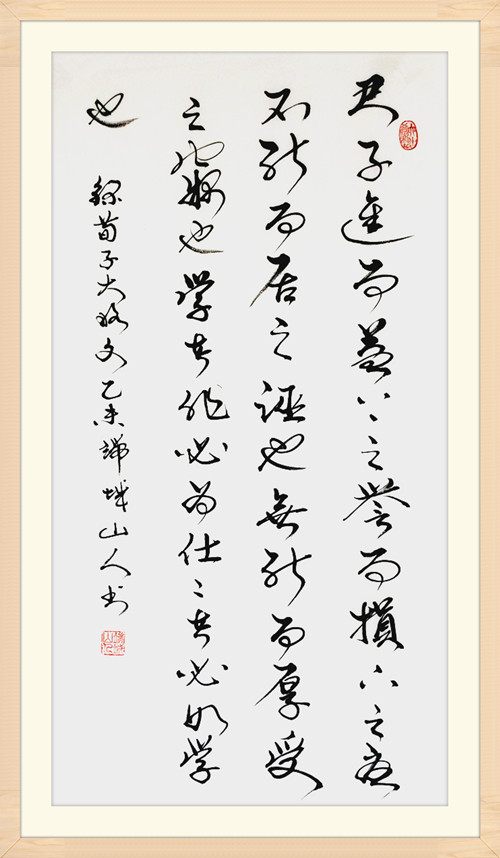 君子進而益上之譽而損下之憂
不能而居之誣也無能而厚受
之竊也學者非必為仕〻者必如學
也
錄荀子大略文乙未端山人书